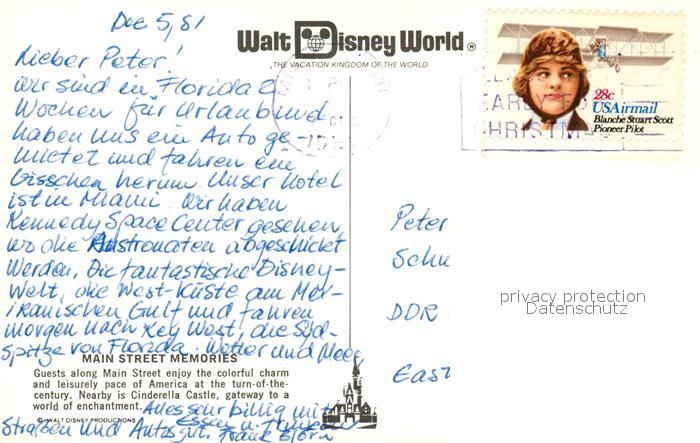 Dec 5, 81
Lieber Peter!
Wir sind in Florida 2
Wochen für Urlaub und
haben uns ein Auto ge-
mietet und fahren ein
bisschen herum. Unser Hotel
ist in Miami. Wir haben
Kennedy Space Center gesehen,
wo die Austronaten abgeschickt
werden, Die fantastische Disney-
Welt, die West-Küste am Mex-
ikanischen Gulf und fahren
morgen nach Key West, die Süd-
spitze von Florida. Wetter und Meer
Alles sehr billig mit
Essen u.
Straßen und Autos gut. Frank Björn
Walt Disney World®
THE VACATION KINGDOM OF THE WORLD
MAIN STREET MEMORIES
Guests along Main Street enjoy the colorful charm
and leisurely pace of America at the turn-of-the-
century. Nearby is Cinderella Castle, gateway to a
world of enchantment.
© WALT DISNEY PRODUCTIONS
28c
USAirmail
Blanche Stuart Scott
Pioneer Pilot
EARLY FO
CHRISTMA
Peter
Schu
DDR
East
privacy protection
Datenschutz